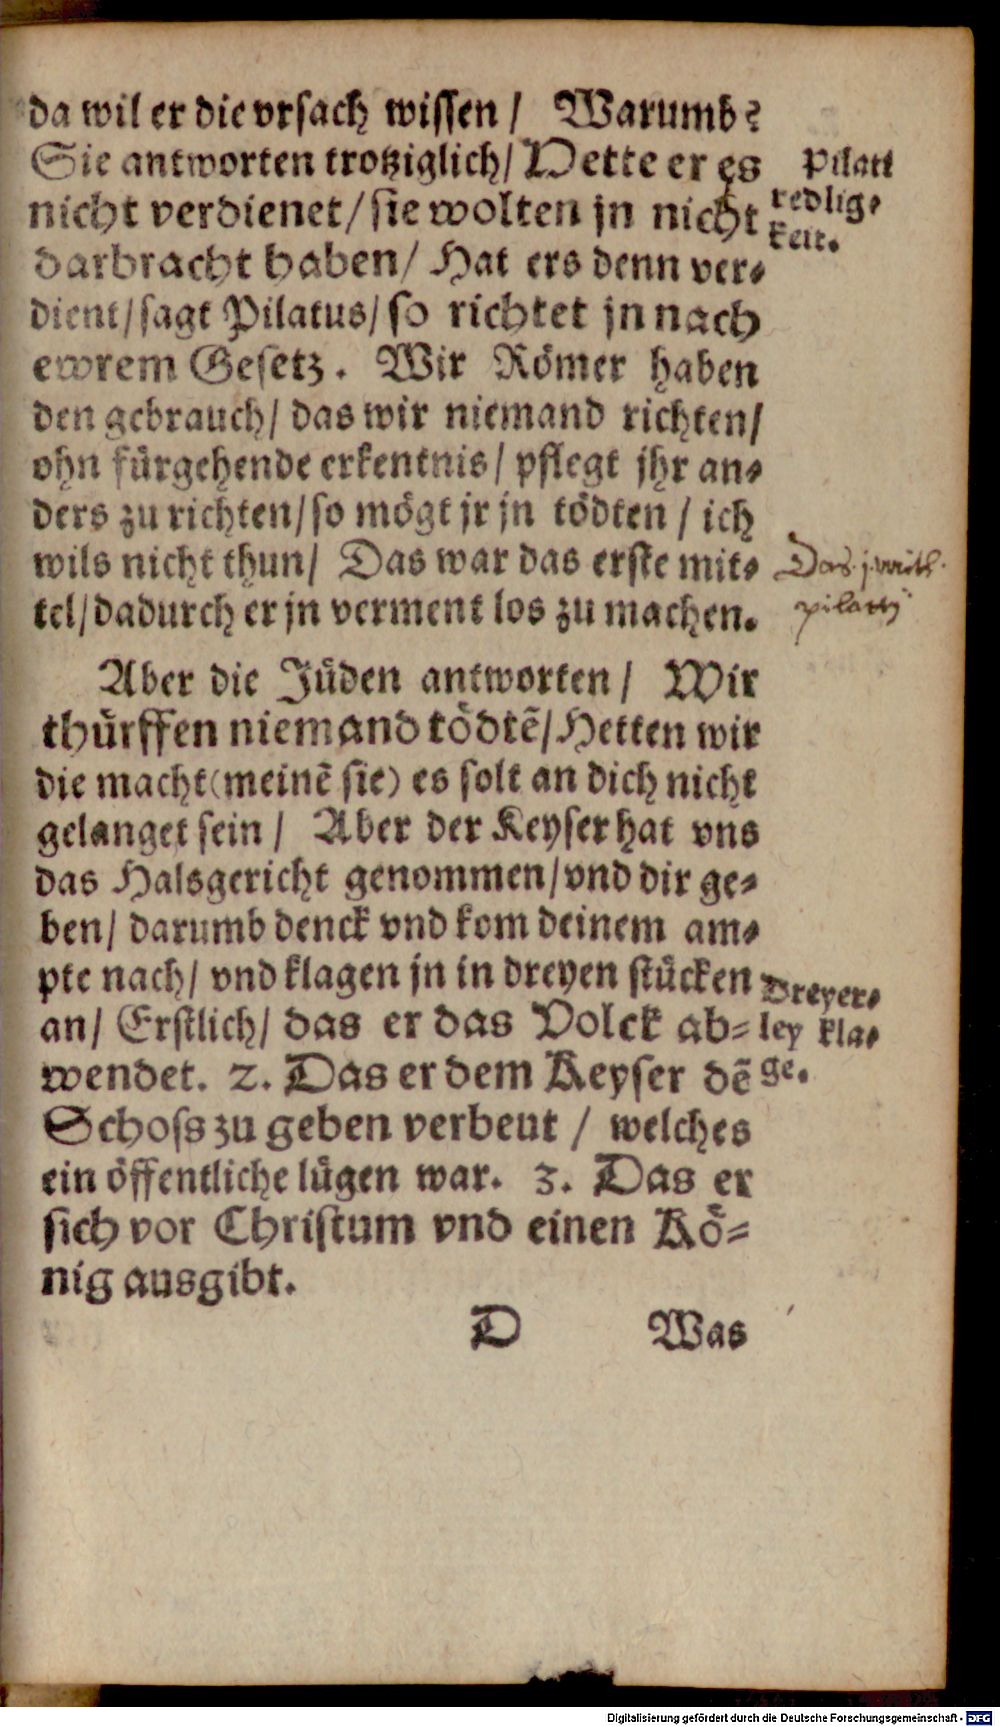 da wil er die vrsach wissen / Warumb?
Sie antworten trotziglich / Vette er es
nicht verdienet / sie wolten jn nicht
darbracht haben / Hat ers denn ver⸗
dient / sagt Pilatus / so richtet jn nach
ewrem Gesetz. Wir Römer haben
den gebrauch / das wir niemand richten /
ohn fürgehende erkentnis / pflegt jhr an⸗
ders zu richten / so mögt jr jn tödten / ich
wils nicht thun / Das war das erste mit⸗
tel / dadurch er jn verment los zu machen.
Pilati
redlig⸗
keit.
Das j.
pilatij
Aber die Jüden antworten / Wir
thürffen niemand tödtē / Hetten wir
die macht (meinē sie) es solt an dich nicht
gelanget sein / Aber der Keyser hat vns
das Halsgericht genommen / vnd dir ge⸗
ben / darumb denck vnd kom deinem am⸗
pte nach / vnd klagen jn in dreyen stücken
an / Erstlich / das er das Volck ab⸗
wendet. 2. Das er dem Keyser dē
Schoss zu geben verbeut / welches
ein öffentliche lügen war. 3. Das er
sich vor Christum vnd einen Kö⸗
nig ausgibt.
Dreyer⸗
ley kla⸗
ge.
D Was
Digitalisierung gefördert durch die Deutsche Forschungsgemeinschaft - DFG